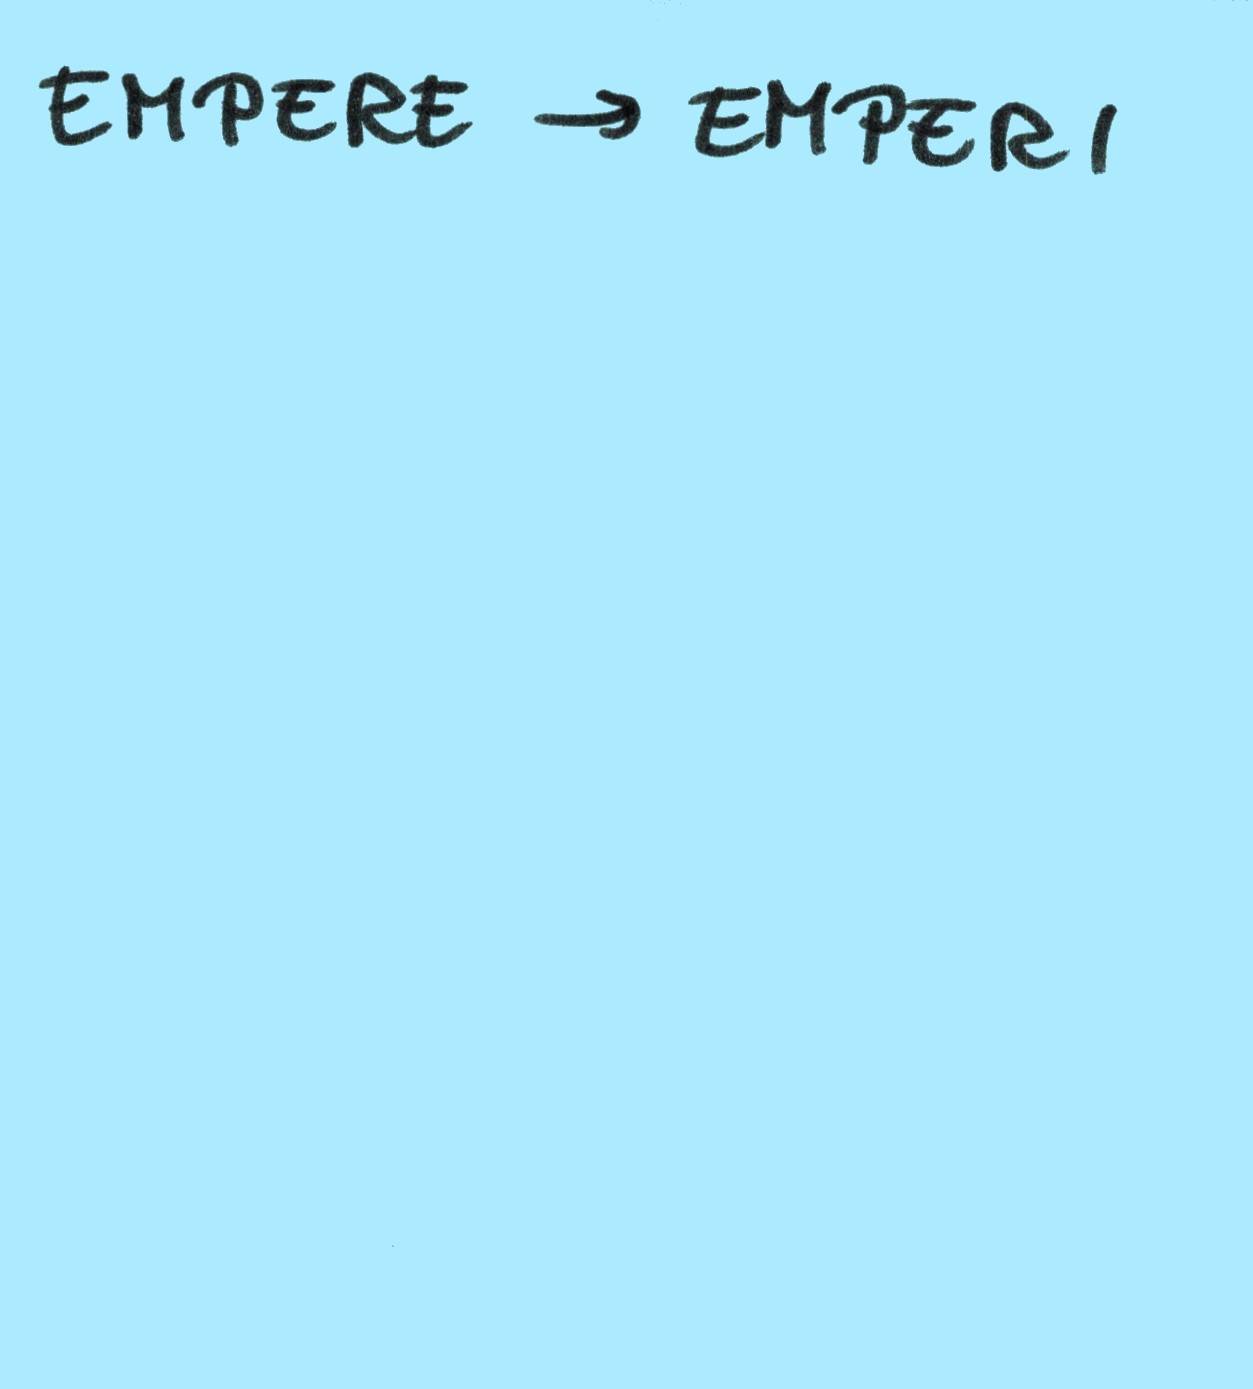 EMPERE → EMPERI